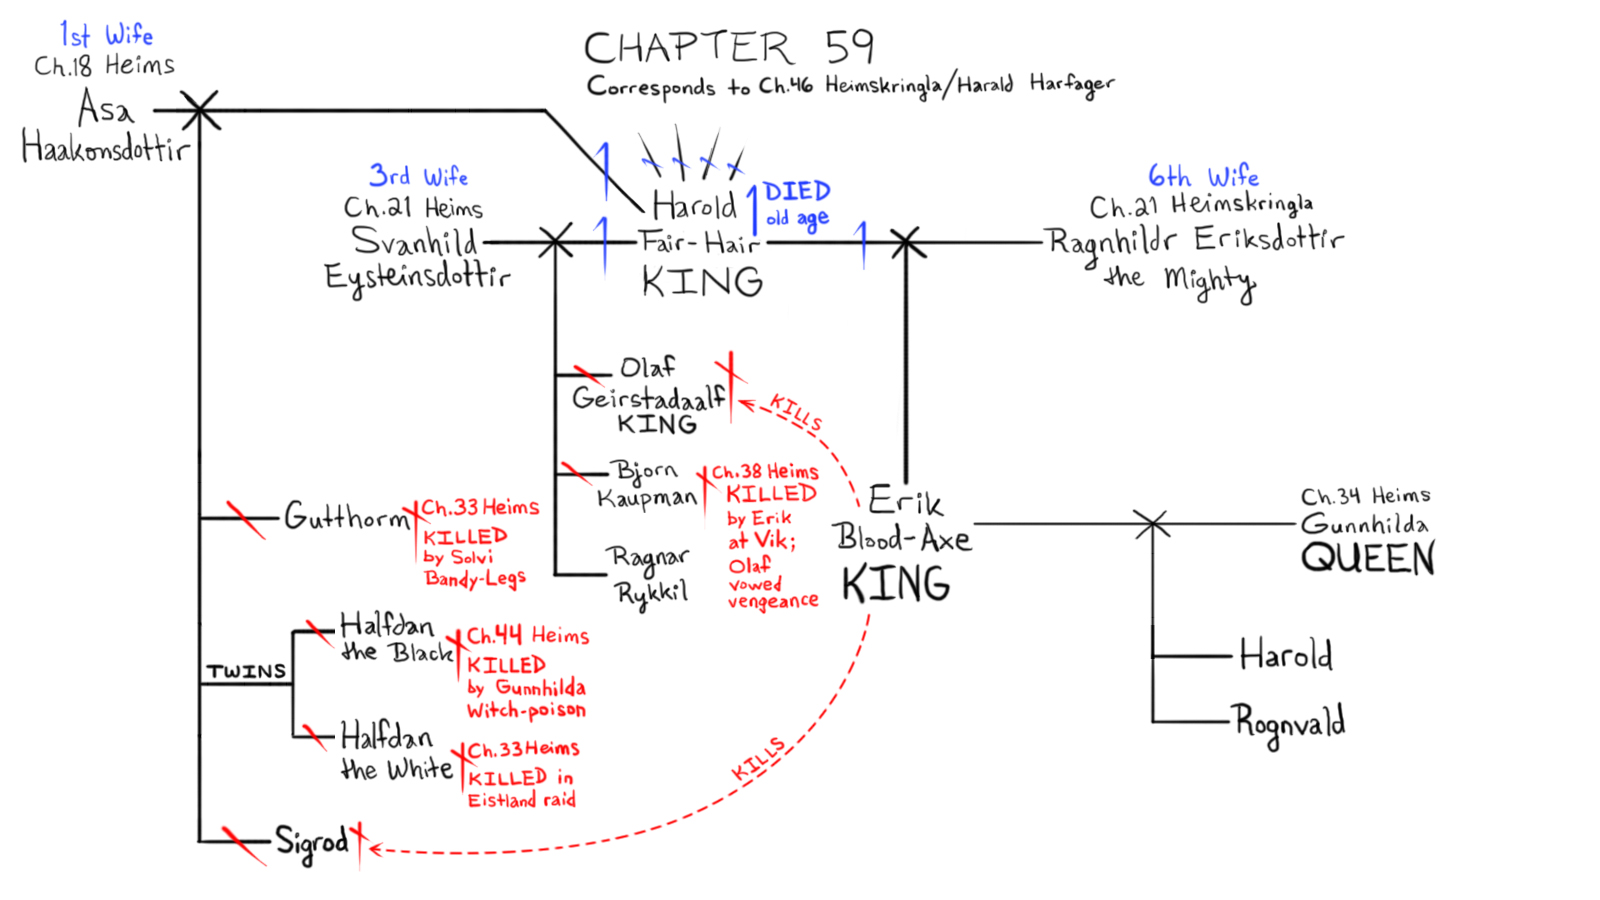 CHAPTER 59
Corresponds to Ch.46 Heimskringla/Harald Harfager
1st Wife
Ch.18 Heims
Asa
Haakonsdottir
3rd Wife
Ch.21 Heims
Svanhild
Eysteinsdottir
Harold
Fair-Hair
KING
DIED
old age
6th Wife
Ch.21 Heimskringla
Ragnhildr Eriksdottir
the Mighty
Olaf
Geirstadaalf
KING
KILLS
Bjorn
Kaupman
Ch.38 Heims
KILLED
by Erik
at Vik;
Olaf
vowed
vengeance
Ragnar
Rykkil
Erik
Blood-Axe
KING
Ch.34 Heims
Gunnhilda
QUEEN
Gutthorm
Ch.33 Heims
KILLED
by Solvi
Bandy-Legs
TWINS
Halfdan
the Black
Ch.44 Heims
KILLED
by Gunnhilda
Witch-poison
Halfdan
the White
Ch.33 Heims
KILLED in
Eistland raid
KILLS
Sigrod
Harold
Rognvald